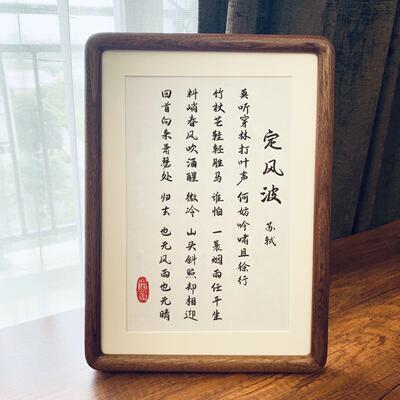 定风波
苏轼
莫听穿林打叶声 何妨吟啸且徐行
竹杖芒鞋轻胜马 谁怕 一蓑烟雨任平生
料峭春风吹酒醒 微冷 山头斜照却相迎
回首向来萧瑟处 归去 也无风雨也无晴